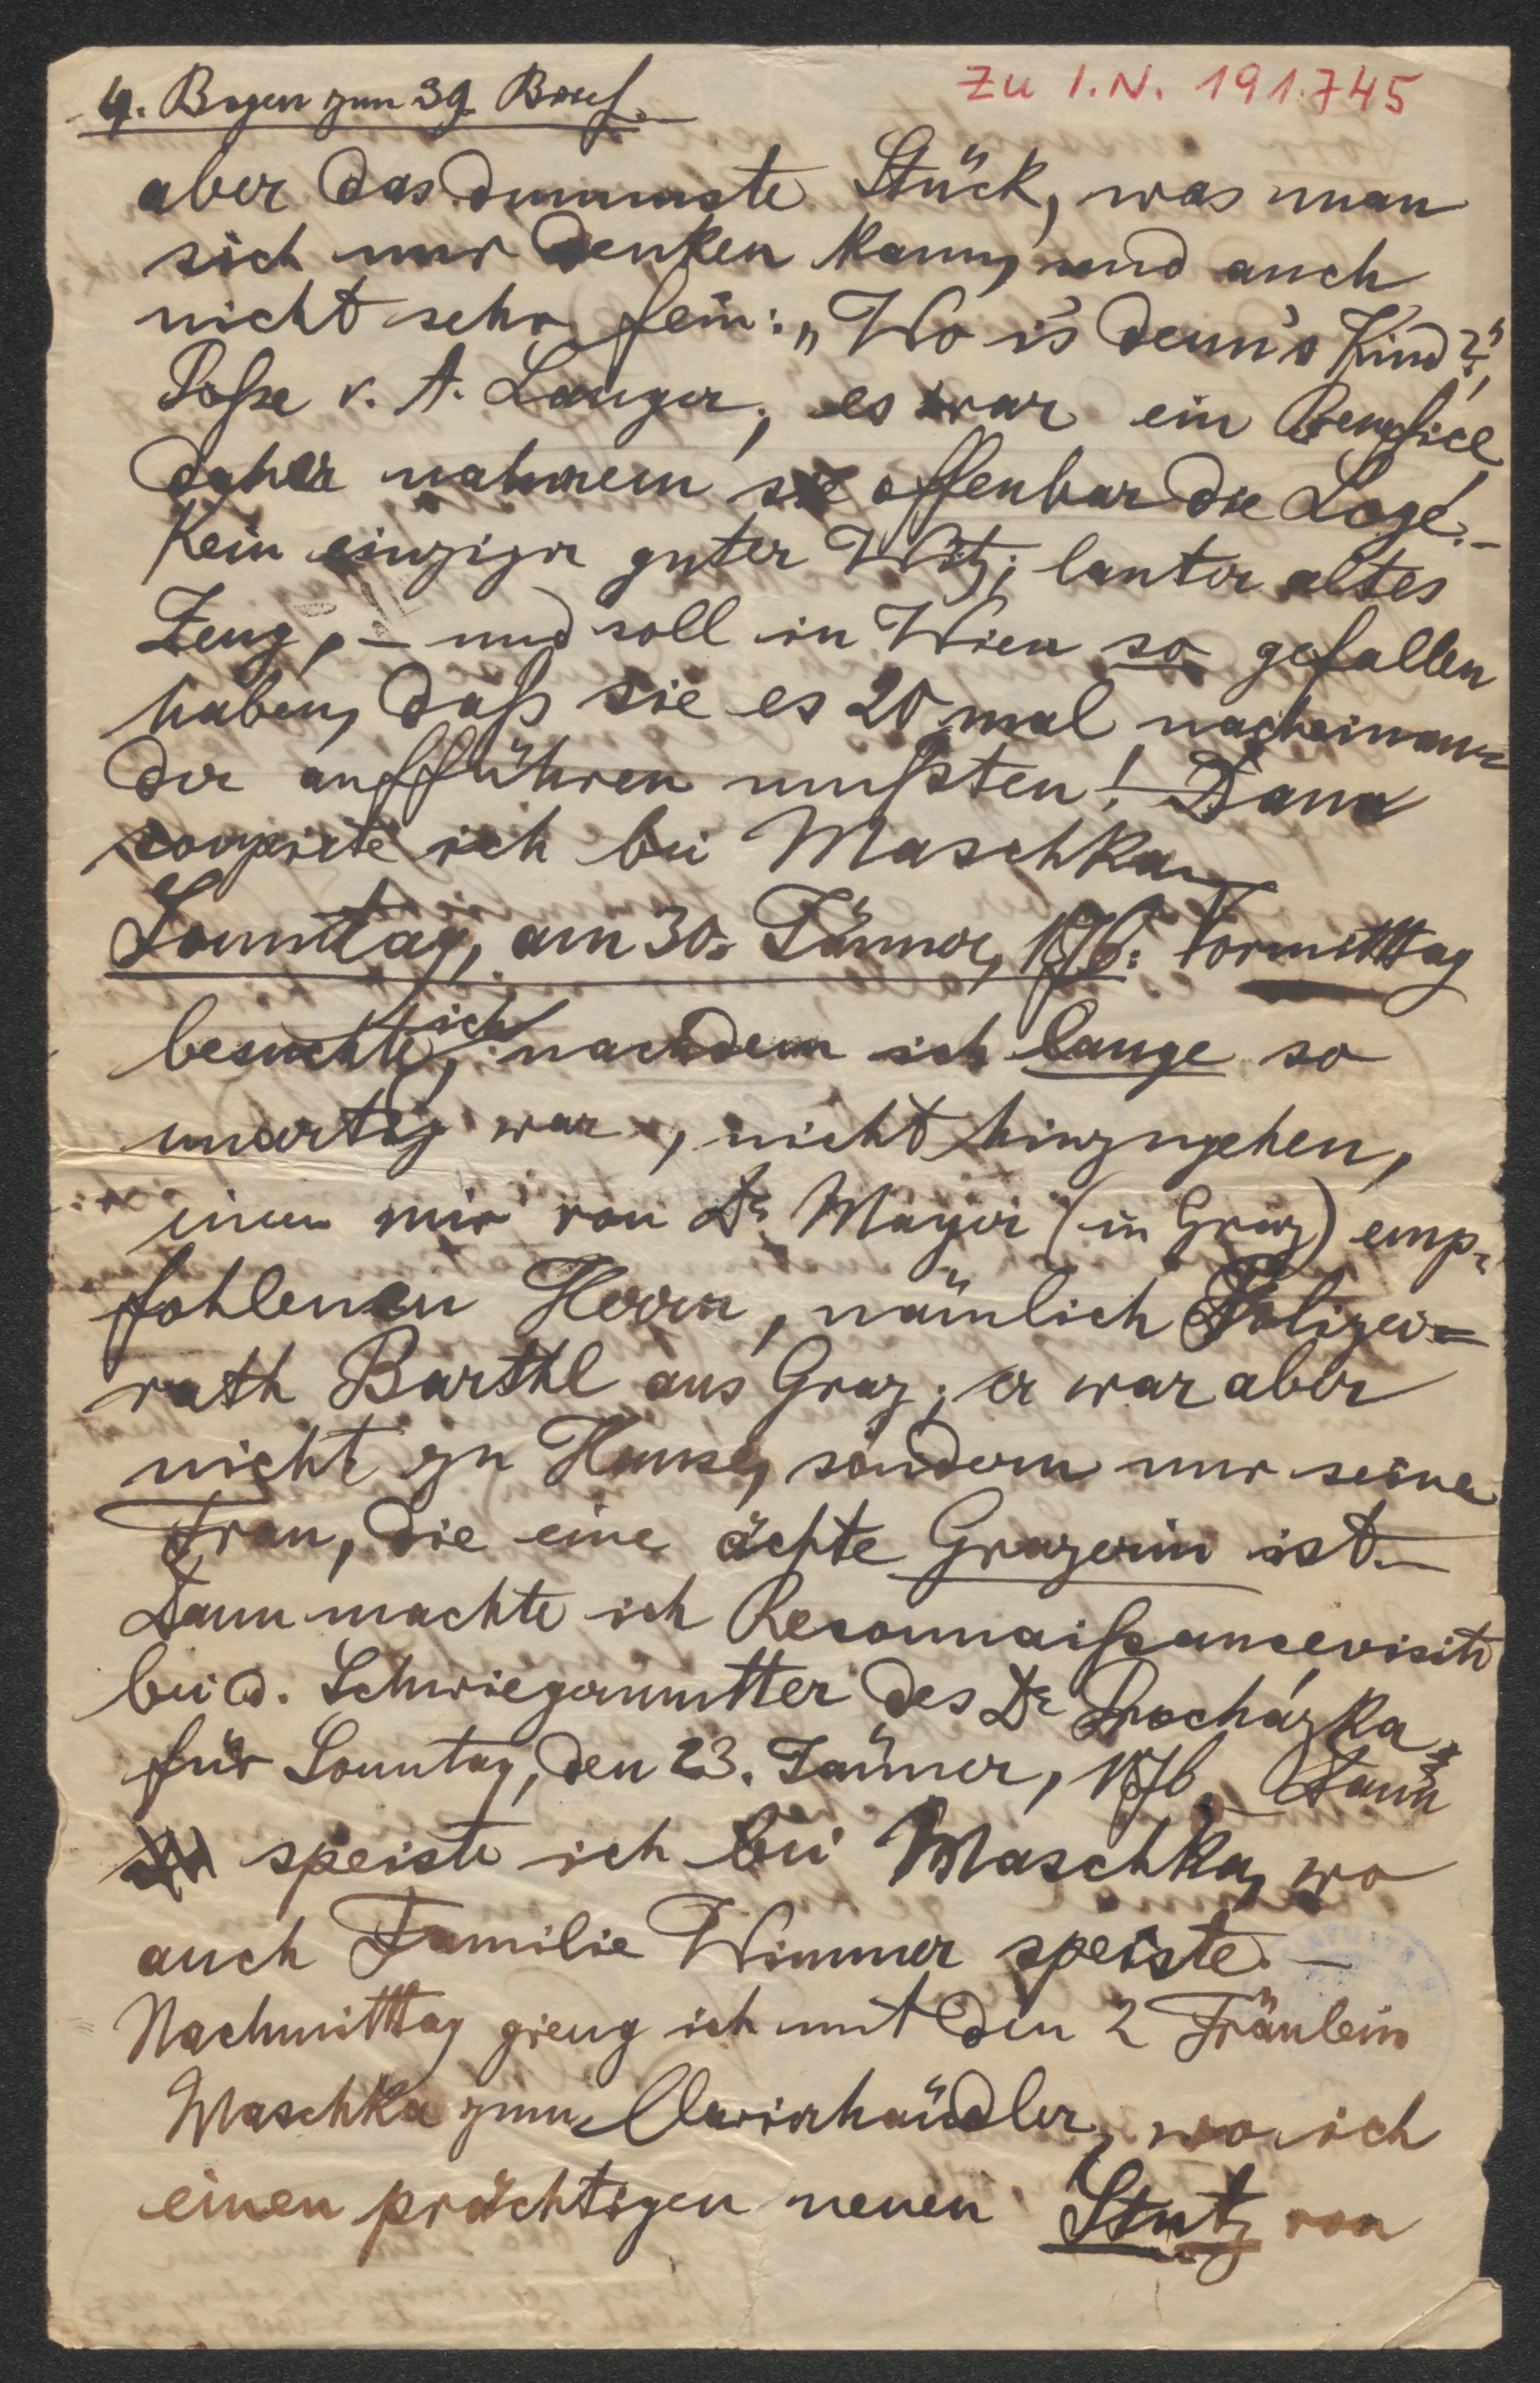 4. Bogen zum 39. Brief.
Zu I.N. 191.745
aber das dummste Stück, was man
sich nur denken kann, und auch
nicht sehr fein: „Wo is denn's Kind?"
Posse v. A. Langer; es war ein Benefice,
daher nahmen sie offenbar die Loge. –
Kein einziger guter Witz; lauter altes
Zeug, – und soll in Wien so gefallen
haben, daß sie es 20 mal nacheinan=
der aufführen mußten! – Dann
soupirte ich bei Maschka. –
Sonntag, am 30. Jänner, 1876: Vormitttag
besuchte ich, nachdem ich lange so
unartig war, nicht hinzugehen,
einen mir von Dr Mayer (in Graz) emp=
fohlenen Herrn, nämlich Polizei=
rath Barthl aus Graz; er war aber
nicht zu Hause, sondern nur seine
Frau, die eine ächte Grazerin ist. –
Dann machte ich Reconnaissancevisite
bei d. Schwiegermutter des Dr Procházka
für Sonntag, den 23. Jänner, 1876. – Dann
speiste ich bei Maschka, wo
auch Familie Wimmer speiste. –
Nachmitttag gieng ich mit den 2 Fräulein
Maschka zum Clavierhändler, wo ich
einen prächtigen neuen Stutz von